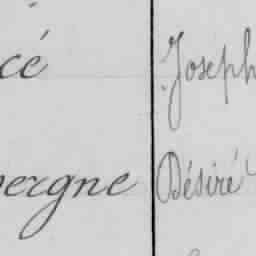 cé Joseph
ergne Désiré